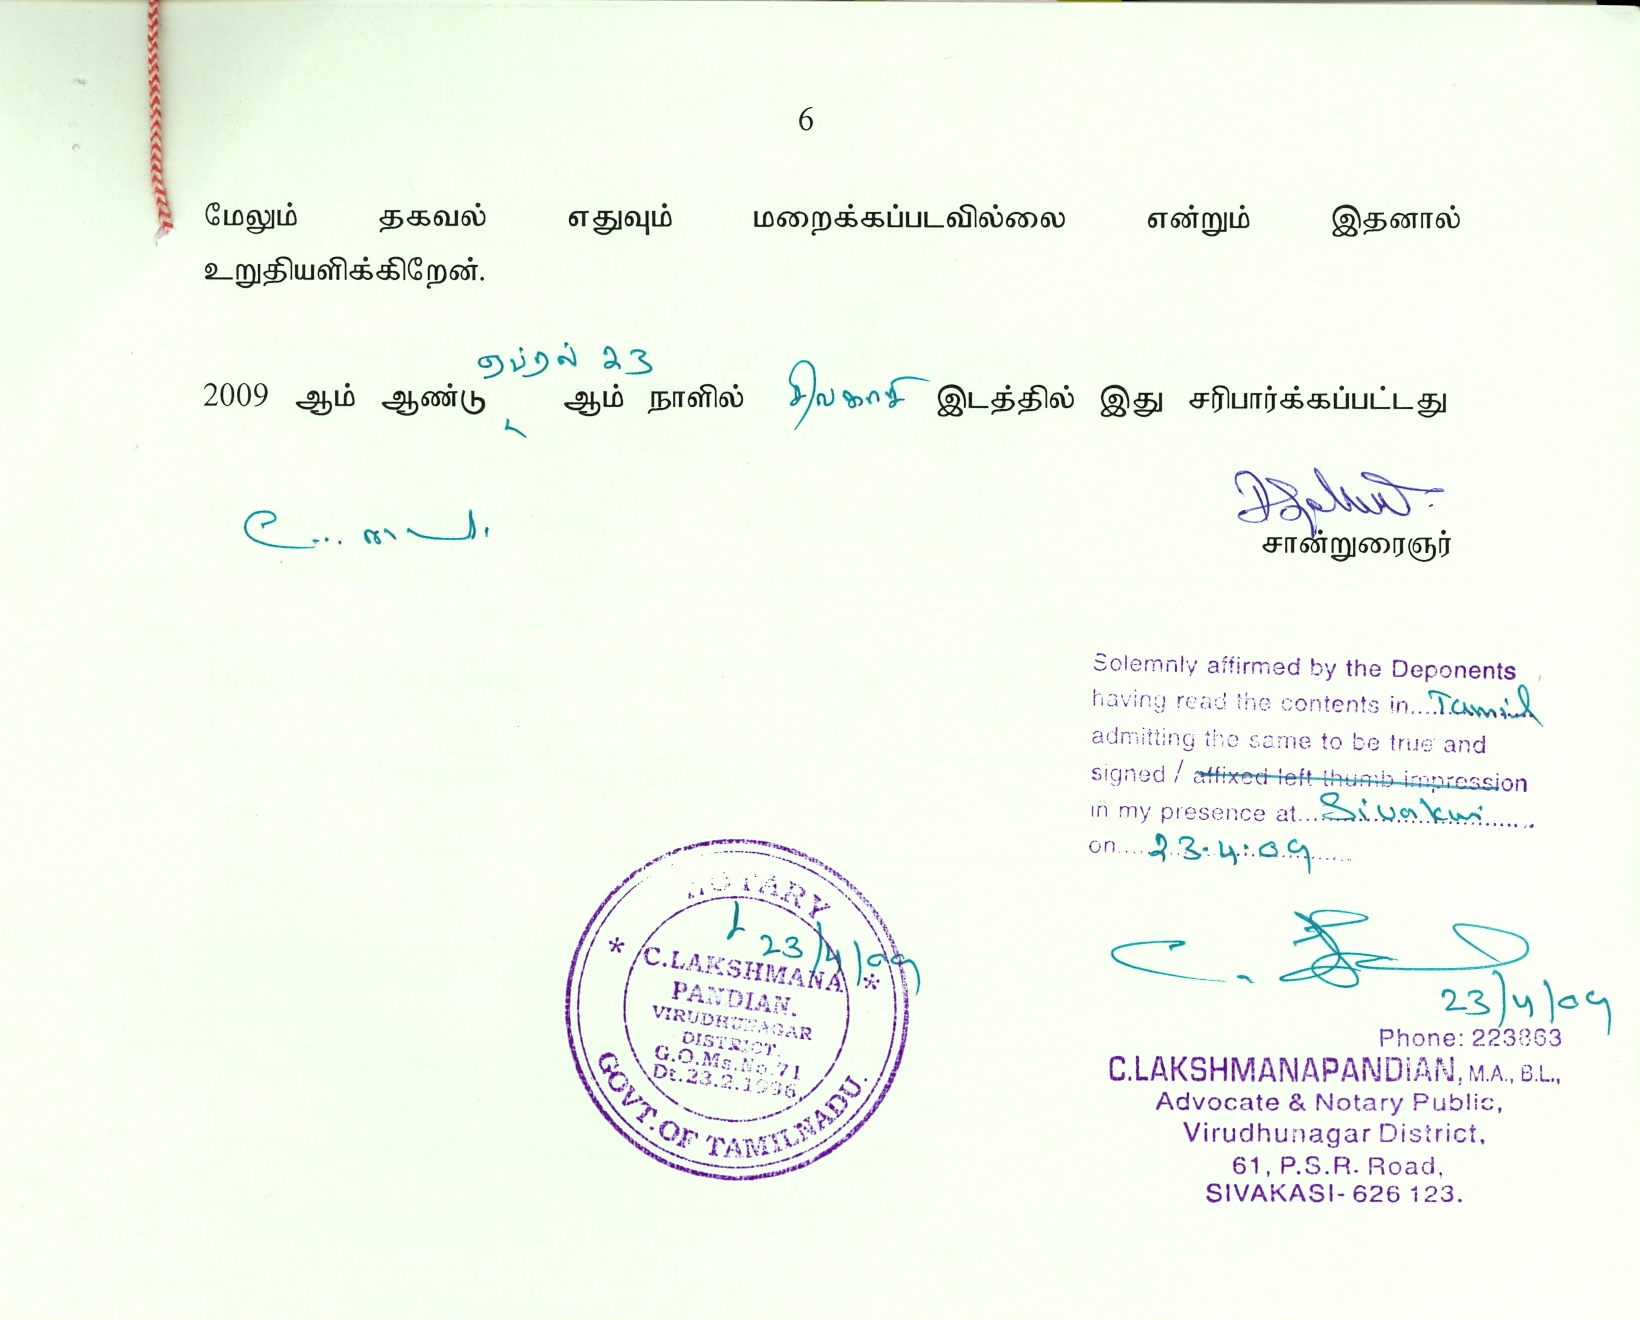 6
மேலும் தகவல் எதுவும் மறைக்கப்படவில்லை என்றும் இதனால்
உறுதியளிக்கிறேன்.
ஏப்ரல் 23
2009 ஆம் ஆண்டு ஆம் நாளில் சிவகாசி இடத்தில் இது சரிபார்க்கப்பட்டது
சான்றுரைஞர்
Solemnly affirmed by the Deponents
having read the contents in....Tamil
admitting the same to be true and
signed / affixed left thumb impression
in my presence at...
on....23.4.09
NOTARY
23/4/09
C.LAKSHMANA
PANDIAN.
VIRUDHUNAGAR
DISTRICT.
G.O.Ms.No.71
Dt.23.2.1996
GOVT.OF TAMILNADU.
23/4/09
Phone: 223863
C.LAKSHMANAPANDIAN, M.A., B.L.,
Advocate & Notary Public,
Virudhunagar District,
61, P.S.R. Road,
SIVAKASI- 626 123.